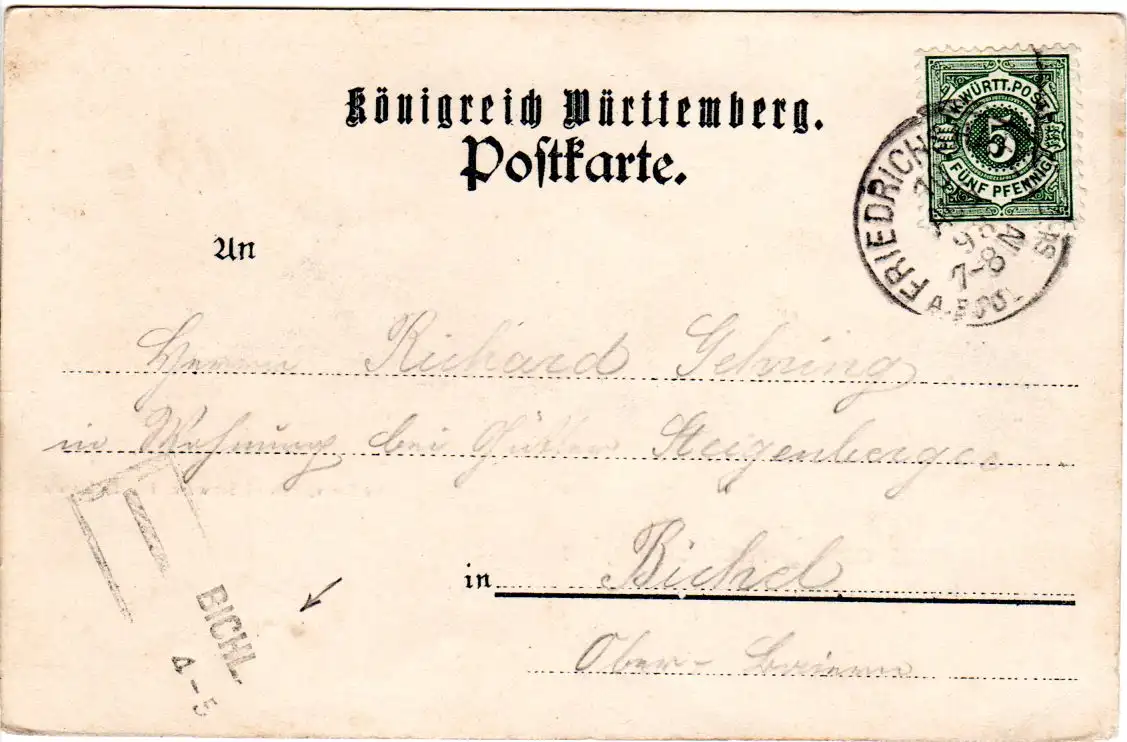 Königreich Württemberg.
Postkarte.
K. WÜRTT. POST
5
FÜNF PFENNIG
FRIEDRICHS
7-8 N
An
Herrn Richard Gehring
in Wohnung bei Steigenberger
in Bichel
Ober-Baiern
BICHL.
4-5